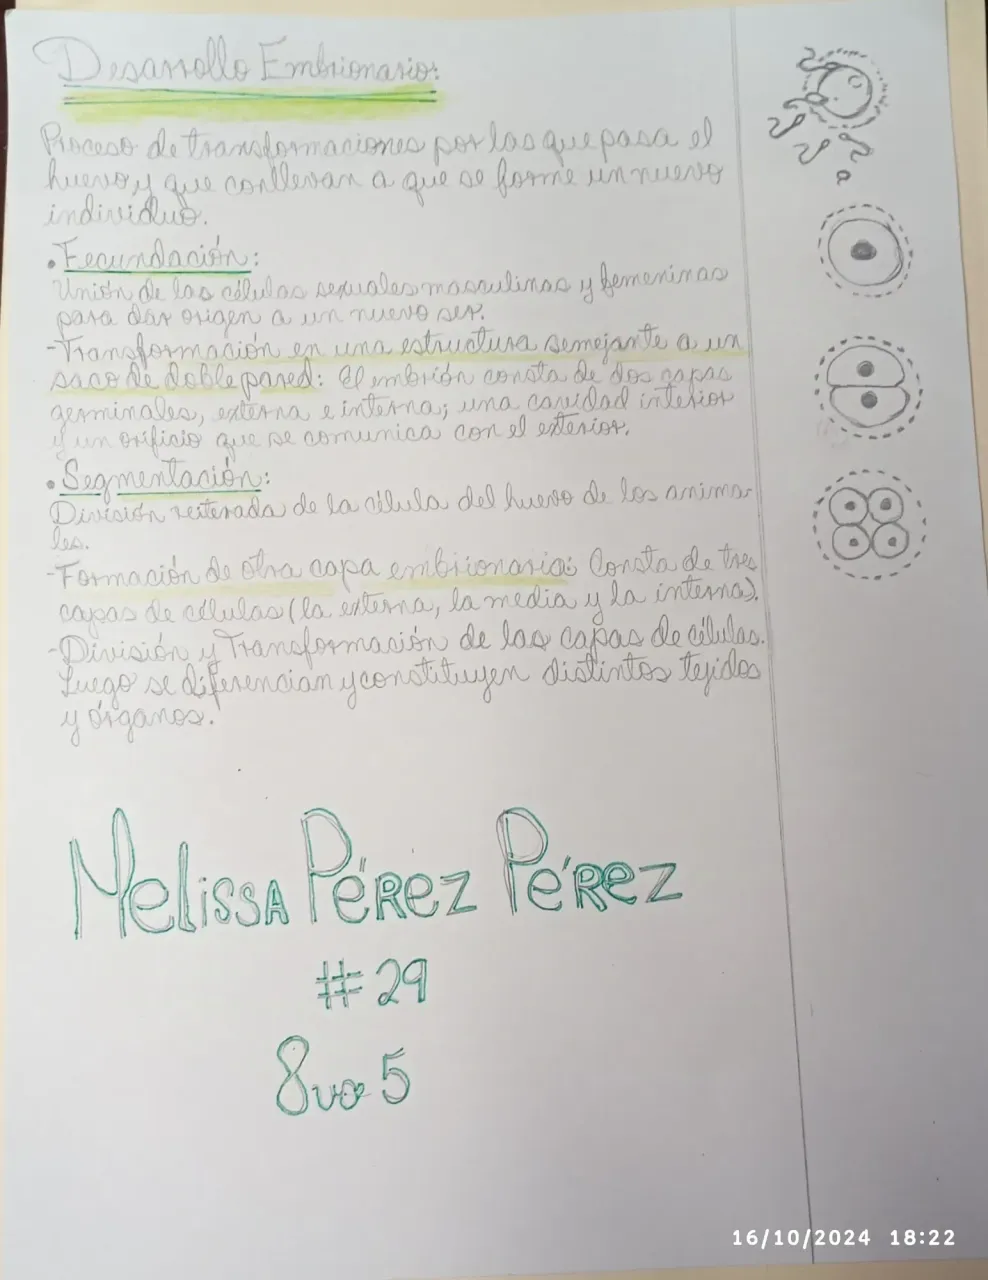 Desarrollo Embrionario:
Proceso de transformaciones por las que pasa el
huevo y que conllevan a que se forme un nuevo
individuo.
• Fecundación:
Unión de las células sexuales masculinas y femeninas
para dar origen a un nuevo ser.
-Transformación en una estructura semejante a un
saco de doble pared: El embrión consta de dos capas
germinales, externa e interna; una cavidad interior
y un orificio que se comunica con el exterior.
• Segmentación:
División reiterada de la célula del huevo de los anima-
les.
-Formación de otra capa embrionaria: Consta de tres
capas de células (la externa, la media y la interna).
-División y Transformación de las capas de células.
Luego se diferencian y constituyen distintos tejidos
y órganos.
Melissa Pérez Pérez
# 29
8vo 5
16/10/2024 18:22